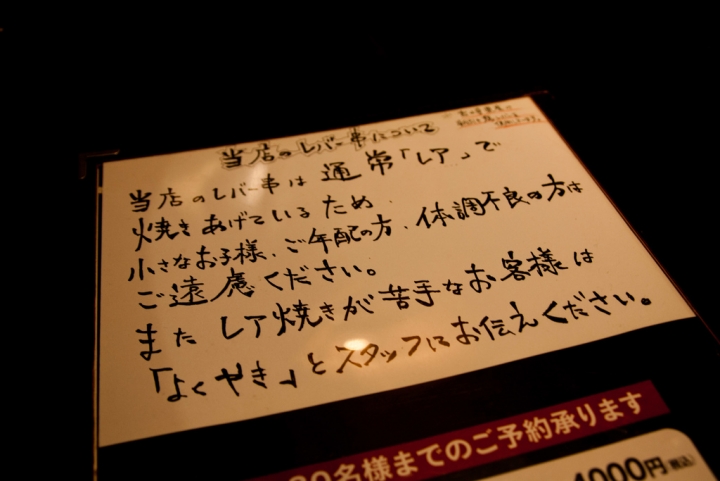 当店のレバー串について
当店のレバー串は通常「レア」で
焼きあげているため
小さなお子様、ご年配の方、体調不良の方は
ご遠慮ください。
また レア焼きが苦手なお客様は
「よくやき」とスタッフにお伝えください。
0名様までのご予約承ります
4000円(税込)